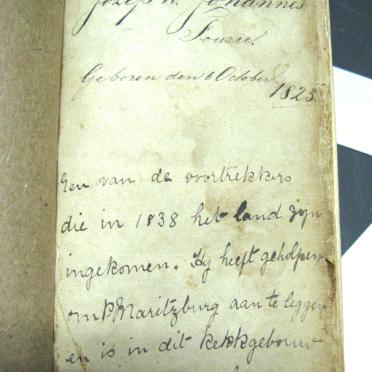 Johannes
Fourie.
Geboren den 6 October
1825.
Een van de voortrekkers
die in 1838 het land zyn
ingekomen. Hy heeft geholpen
om P. Maritzburg aan te leggen
en is in dit kerkgebouw